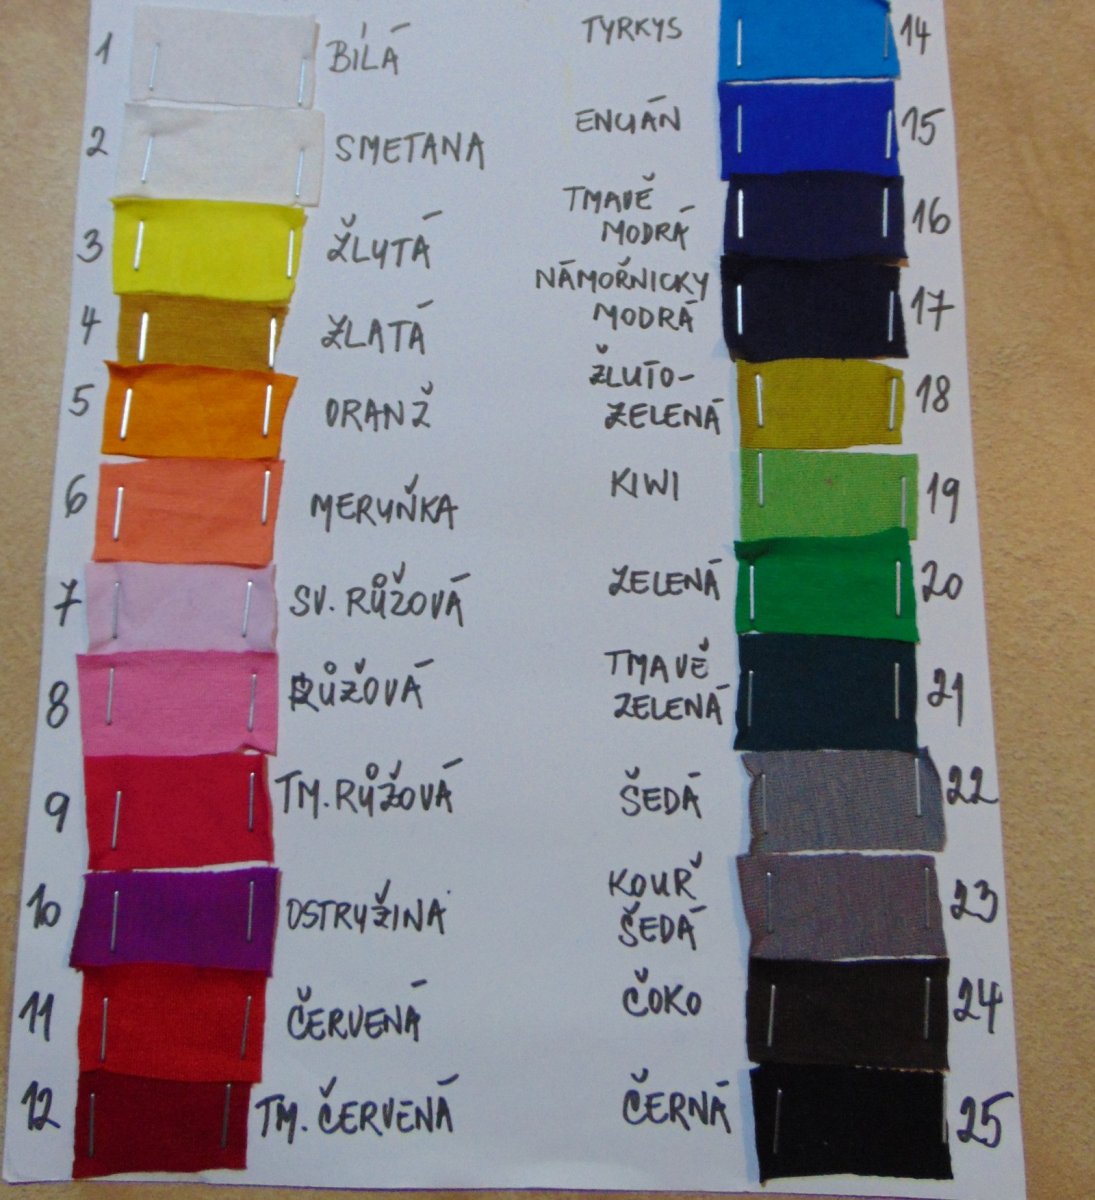 1 BÍLÁ
2 SMETANA
3 ŽLUTÁ
4 ZLATÁ
5 ORANŽ
6 MERUŇKA
7 SV. RŮŽOVÁ
8 RŮŽOVÁ
9 TM. RŮŽOVÁ
10 OSTRUŽINA
11 ČERVENÁ
12 TM. ČERVENÁ
TYRKYS 14
ENCIÁN 15
TMAVĚ
MODRÁ 16
NÁMOŘNICKY
MODRÁ 17
ŽLUTO-
ZELENÁ 18
KIWI 19
ZELENÁ 20
TMAVĚ
ZELENÁ 21
ŠEDÁ 22
KOUŘ
ŠEDÁ 23
ČOKO 24
ČERNÁ 25